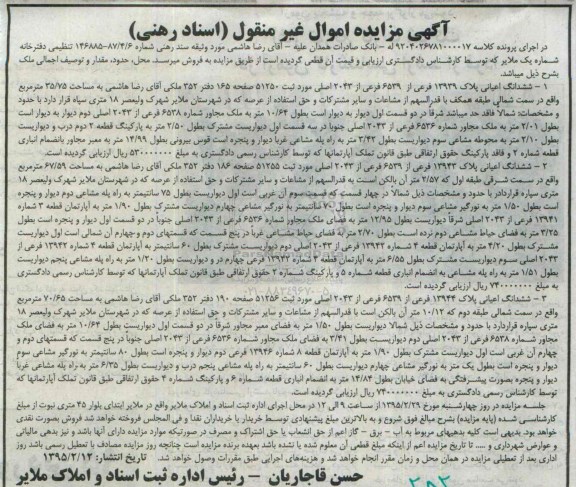 آگهی مزایده اموال غیر منقول (اسناد رهنی)
در اجرای پرونده کلاسه ۹۲۰۴۰۲۶۷۸۱۰۰۰۰۱۷ له – بانک صادرات همدان علیه – آقای رضا هاشمی مورد وثیقه سند رهنی شماره ۸۷/۴/۶-۱۴۶۸۸۵ تنظیمی دفترخانه
شماره یک ملایر که توسط کارشناس دادگستری ارزیابی و قیمت آن قطعی گردیده است از طریق مزایده به فروش میرسد. محل، حدود، مقدار و توصیف اجمالی ملک
بشرح ذیل میباشد.
۱ – ششدانگ اعیانی پلاک ۱۳۹۳۹ فرعی از ۶۵۳۹ فرعی از ۲۰۴۳ اصلی مورد ثبت ۵۱۲۵۰ صفحه ۱۶۵ دفتر ۳۵۲ ملکی آقای رضا هاشمی به مساحت ۳۵/۷۵ مترمربع
واقع در سمت شمالی طبقه همکف با قدرالسهم از مشاعات و سایر مشترکات و حق استفاده از عرصه که در شهرستان ملایر شهرک ولیعصر ۱۸ متری سپاه قرار دارد با حدود
و مشخصات: شمالا فاقد حد میباشد شرقا در دو قسمت اول دیوار به دیوار است بطول ۱۰/۶۴ متر به ملک مجاور شماره ۶۵۳۸ فرعی از ۲۰۴۳ اصلی دوم دیوار به دیوار است
بطول ۲/۰۱ متر به ملک مجاور شماره ۶۵۳۶ فرعی از ۲۰۴۳ اصلی جنوبا در سه قسمت اول دیواریست مشترک بطول ۲/۵۰ متر به پارکینگ قطعه ۲ دوم درب و دیواریست
بطول ۲/۱۰ متر به محوطه مشاعی سوم دیواریست بطول ۳/۴۲ متر به راه پله مشاعی غربا دیوار و پنجره است قوس بیرونی بطول ۱۴/۹۹ متر به معبر مجاور بانضمام انباری
شماره ۲ و فاقد پارکینگ حقوق ارتفاقی طبق قانون تملک آپارتمانها که توسط کارشناس رسمی دادگستری به مبلغ ۵۳۰۰۰۰۰۰۰ ریال ارزیابی گردیده است.
۲ – ششدانگ اعیانی پلاک ۱۳۹۴۳ فرعی از ۶۵۳۹ فرعی از ۲۰۴۳ اصلی مورد ثبت ۵۱۲۵۵ صفحه ۱۸۶ دفتر ۳۵۲ ملکی آقای رضا هاشمی به مساحت ۶۷/۵۹ مترمربع
واقع در سمت شرقی طبقه اول که ۲/۵۷ متر آن بالکن است به قدرالسهم از مشاعات و سایر مشترکات و حق استفاده از عرصه که در شهرستان ملایر شهرک ولیعصر ۱۸
متری سپاه قراردارد با حدود و مشخصات ذیل شمالا در چهار قسمت که قسمت سوم آن غربی است اول دیواریست بطول ۷۵ سانتیمتر به راه پله مشاعی دوم دیوار و پنجره
است بطول ۱/۵۰ متر به نورگیر مشاعی سوم دیوار و پنجره است بطول ۷۰ سانتیمتر به نورگیر مشاعی چهارم دیواریست مشترک بطول ۱/۹۰ متر به آپارتمان قطعه ۳ شماره
۱۳۹۴۱ فرعی از ۲۰۴۳ اصلی شرقا دیواریست بطول ۱۲/۹۵ متر به فضای ملک مجاور شماره ۶۵۳۶ فرعی از ۲۰۴۳ اصلی جنوبا در دو قسمت اول دیوار و پنجره است بطول
۳/۲۵ متر به فضای حیاط مشاعی دوم نرده است بطول ۲/۷۰ متر به فضای حیاط مشاعی غربا در پنج قسمت که قسمتهای دوم و چهارم آن شمالی است اول دیواریست
مشترک بطول ۴/۲۰ متر به آپارتمان قطعه ۴ شماره ۱۳۹۴۲ فرعی از ۲۰۴۳ اصلی دوم دیواریست مشترک بطول ۶۰ سانتیمتر به آپارتمان قطعه ۴ شماره ۱۳۹۴۲ فرعی از
۲۰۴۳ اصلی سوم دیواریست مشترک بطول ۶/۵۵ متر به آپارتمان قطعه ۴ شماره ۱۳۹۴۲ فرعی چهارم در و دیواریست بطول ۱/۲۰ متر به راه پله مشاعی پنجم دیواریست
بطول ۱/۵۱ متر به راه پله مشاعی به انضمام انباری قطعه شماره ۵ و پارکینگ شماره ۲ حقوق ارتفاقی طبق قانون تملک آپارتمانها که توسط کارشناس رسمی دادگستری
به مبلغ ۷۴۰۰۰۰۰۰۰ ریال ارزیابی گردیده است.
۳ – ششدانگ اعیانی پلاک ۱۳۹۴۴ فرعی از ۶۵۳۹ فرعی از ۲۰۴۳ اصلی مورد ثبت ۵۱۲۵۶ صفحه ۱۹۰ دفتر ۳۵۲ ملکی آقای رضا هاشمی به مساحت ۷۰/۶۵ مترمربع
واقع در سمت شمالی طبقه دوم که ۱۰/۱۲ متر آن بالکن است با قدرالسهم از مشاعات و سایر مشترکات و حق استفاده از عرصه که در شهرستان ملایر شهرک ولیعصر ۱۸
متری سپاه قراردارد با حدود و مشخصات ذیل شمالا: دیواریست بطول ۱/۵۰ متر به فضای معبر مجاور شرقا در دو قسمت اول دیواریست بطول ۱۰/۶۴ متر به فضای ملک
مجاور شماره ۶۵۳۸ فرعی از ۲۰۴۳ اصلی دوم دیواریست بطول ۳/۴۱ متر به فضای ملک مجاور شماره ۶۵۳۶ فرعی از ۲۰۴۳ اصلی جنوبا در پنج قسمت که قسمتهای دوم و
چهارم آن غربی است اول دیواریست مشترک بطول ۱/۹۰ متر به آپارتمان قطعه ۸ شماره ۱۳۹۴۶ فرعی از ۲۰۴۳ اصلی دوم دیوار و پنجره است بطول ۸۰ سانتیمتر به نورگیر مشاعی سوم
دیوار و پنجره است بطول یک متر به نورگیر مشاعی چهارم دیواریست بطول ۶۰ سانتیمتر به راه پله مشاعی پنجم درب و دیواریست بطول ۶/۳۵ متر به راه پله مشاعی غربا
دیوار و پنجره بصورت پیشرفتگی به فضای خیابان بطول ۱۴/۸۴ متر به انضمام انباری قطعه شماره ۶ و پارکینگ شماره ۴ حقوق ارتفاقی طبق قانون تملک آپارتمانها که
توسط کارشناس رسمی دادگستری به مبلغ ۷۴۰۰۰۰۰۰۰ ریال ارزیابی گردیده است.
جلسه مزایده در روز چهارشنبه مورخ ۱۳۹۵/۲/۲۹ از ساعت ۹ الی ۱۲ در محل اجرای اداره ثبت اسناد و املاک ملایر واقع در ملایر ابتدای بلوار ۴۵ متری نبوت از مبلغ
کارشناسی شده (پایه مزایده) بشرح مبالغ فوق شروع و به بالاترین مبلغ پیشنهادی توسط خریدار یا خریداران نقدا و فی المجلس فروخته خواهد شد فروش بصورت نقدی
خواهد بود. بدیهی است کلیه بدهیهای مربوط به آب – برق – گاز اعم از حق انشعاب یا حق اشتراک و مصرف در صورتیکه موارد مزایده دارای آنها باشد و نیز بدهی مالیاتی
و عوارض شهرداری و .... تا تاریخ مزایده اعم از اینکه مبلغ قطعی آن معلوم شده یا نشده باشد بعهده برنده مزایده است چنانچه روز مزایده مصادف با تعطیل رسمی باشد روز
اداری بعد از تعطیلی مزایده در همان محل و زمان مقرر انجام خواهد شد و هزینه‌های اجرایی طبق مقررات وصول خواهد شد. تاریخ انتشار: ۱۳۹۵/۲/۱۲
حسن قاجاریان – رئیس اداره ثبت اسناد و املاک ملایر
۲۹۲